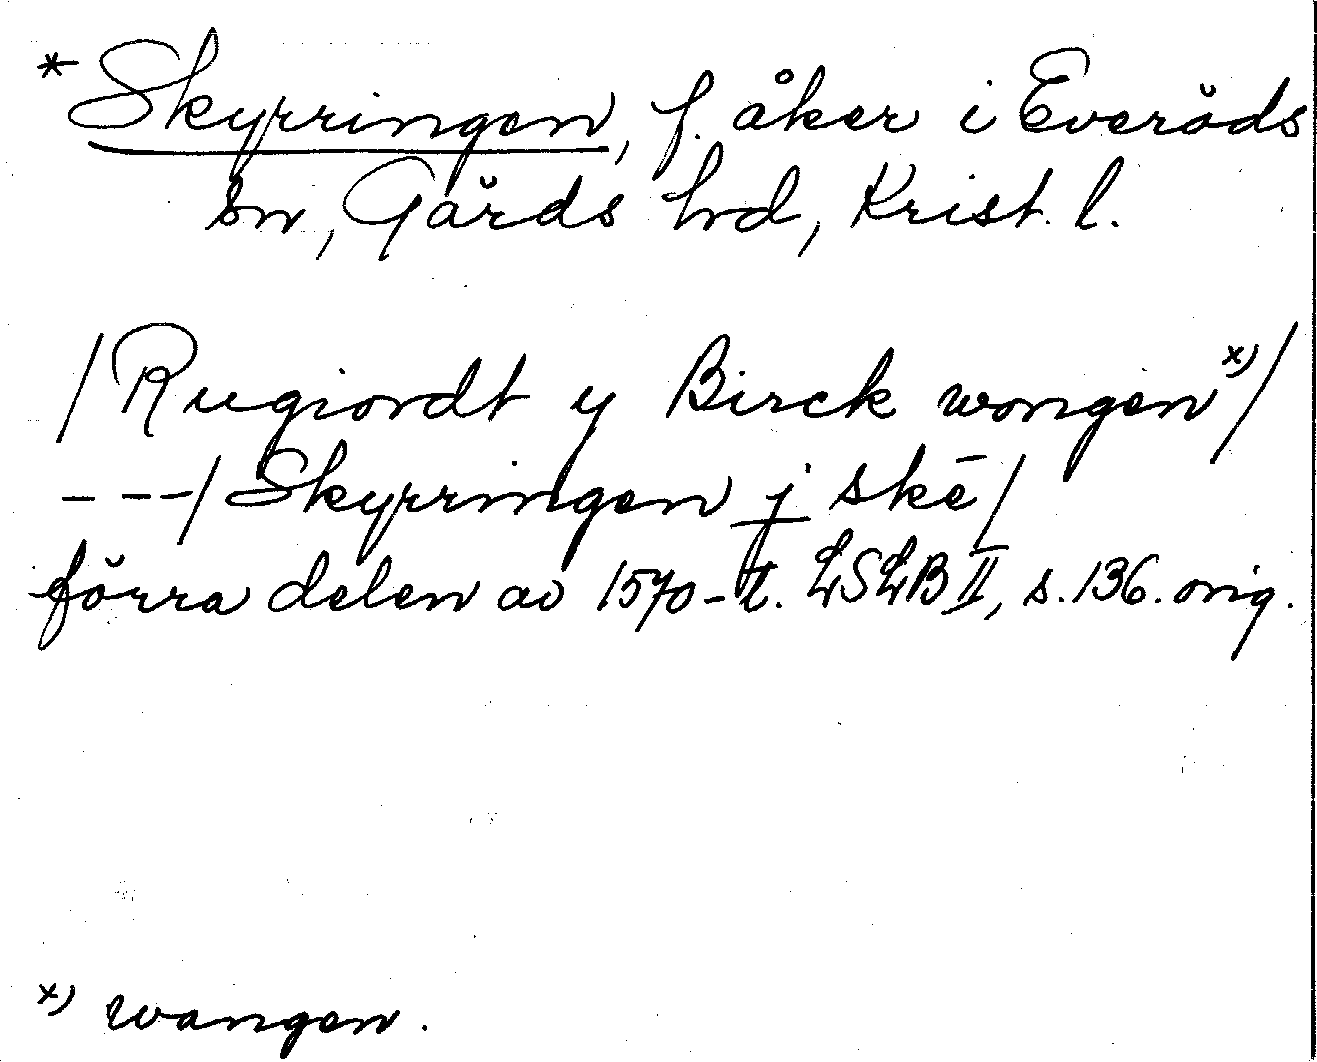 *Skyrringen, f. åker i Everöds
sn, Gärds hd, Krist. l.
/Rugiordt y Birck wongen x)/
---/Skyrringen j skē/
förra delen av 1570-t. LSLB II, s. 136. orig.
x) wangen.